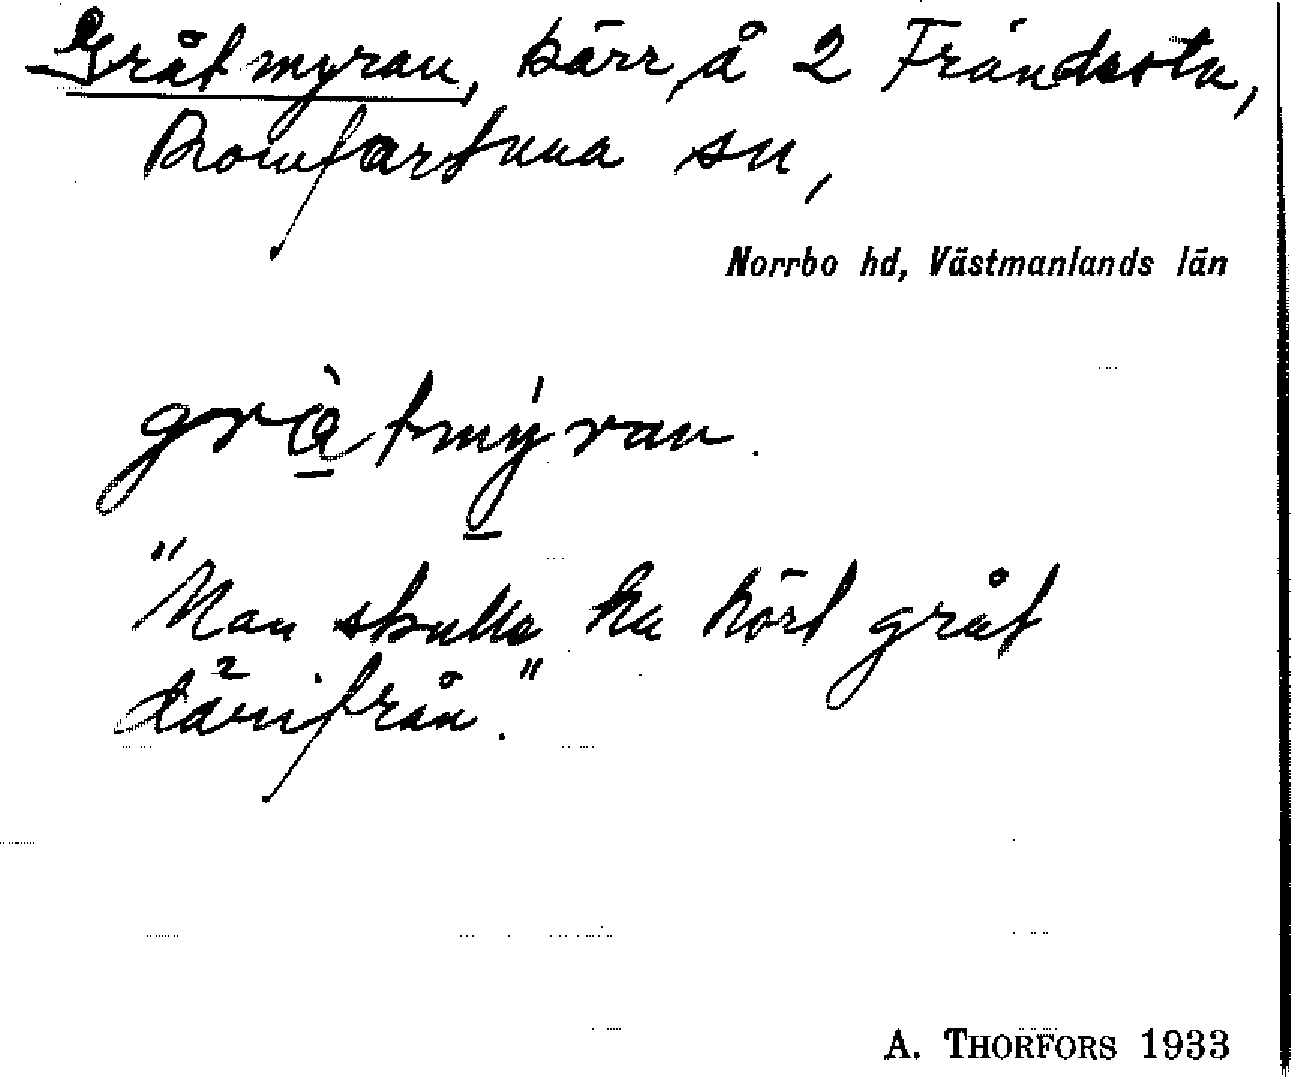 Gråtmyran, kärr, å 2 Frändesta,
Romfartuna sn,
Norrbo hd, Västmanlands län
grà̱tmý̱ran.
"Man skulle ha hört gråt
därifrån."
A. THORFORS 1933